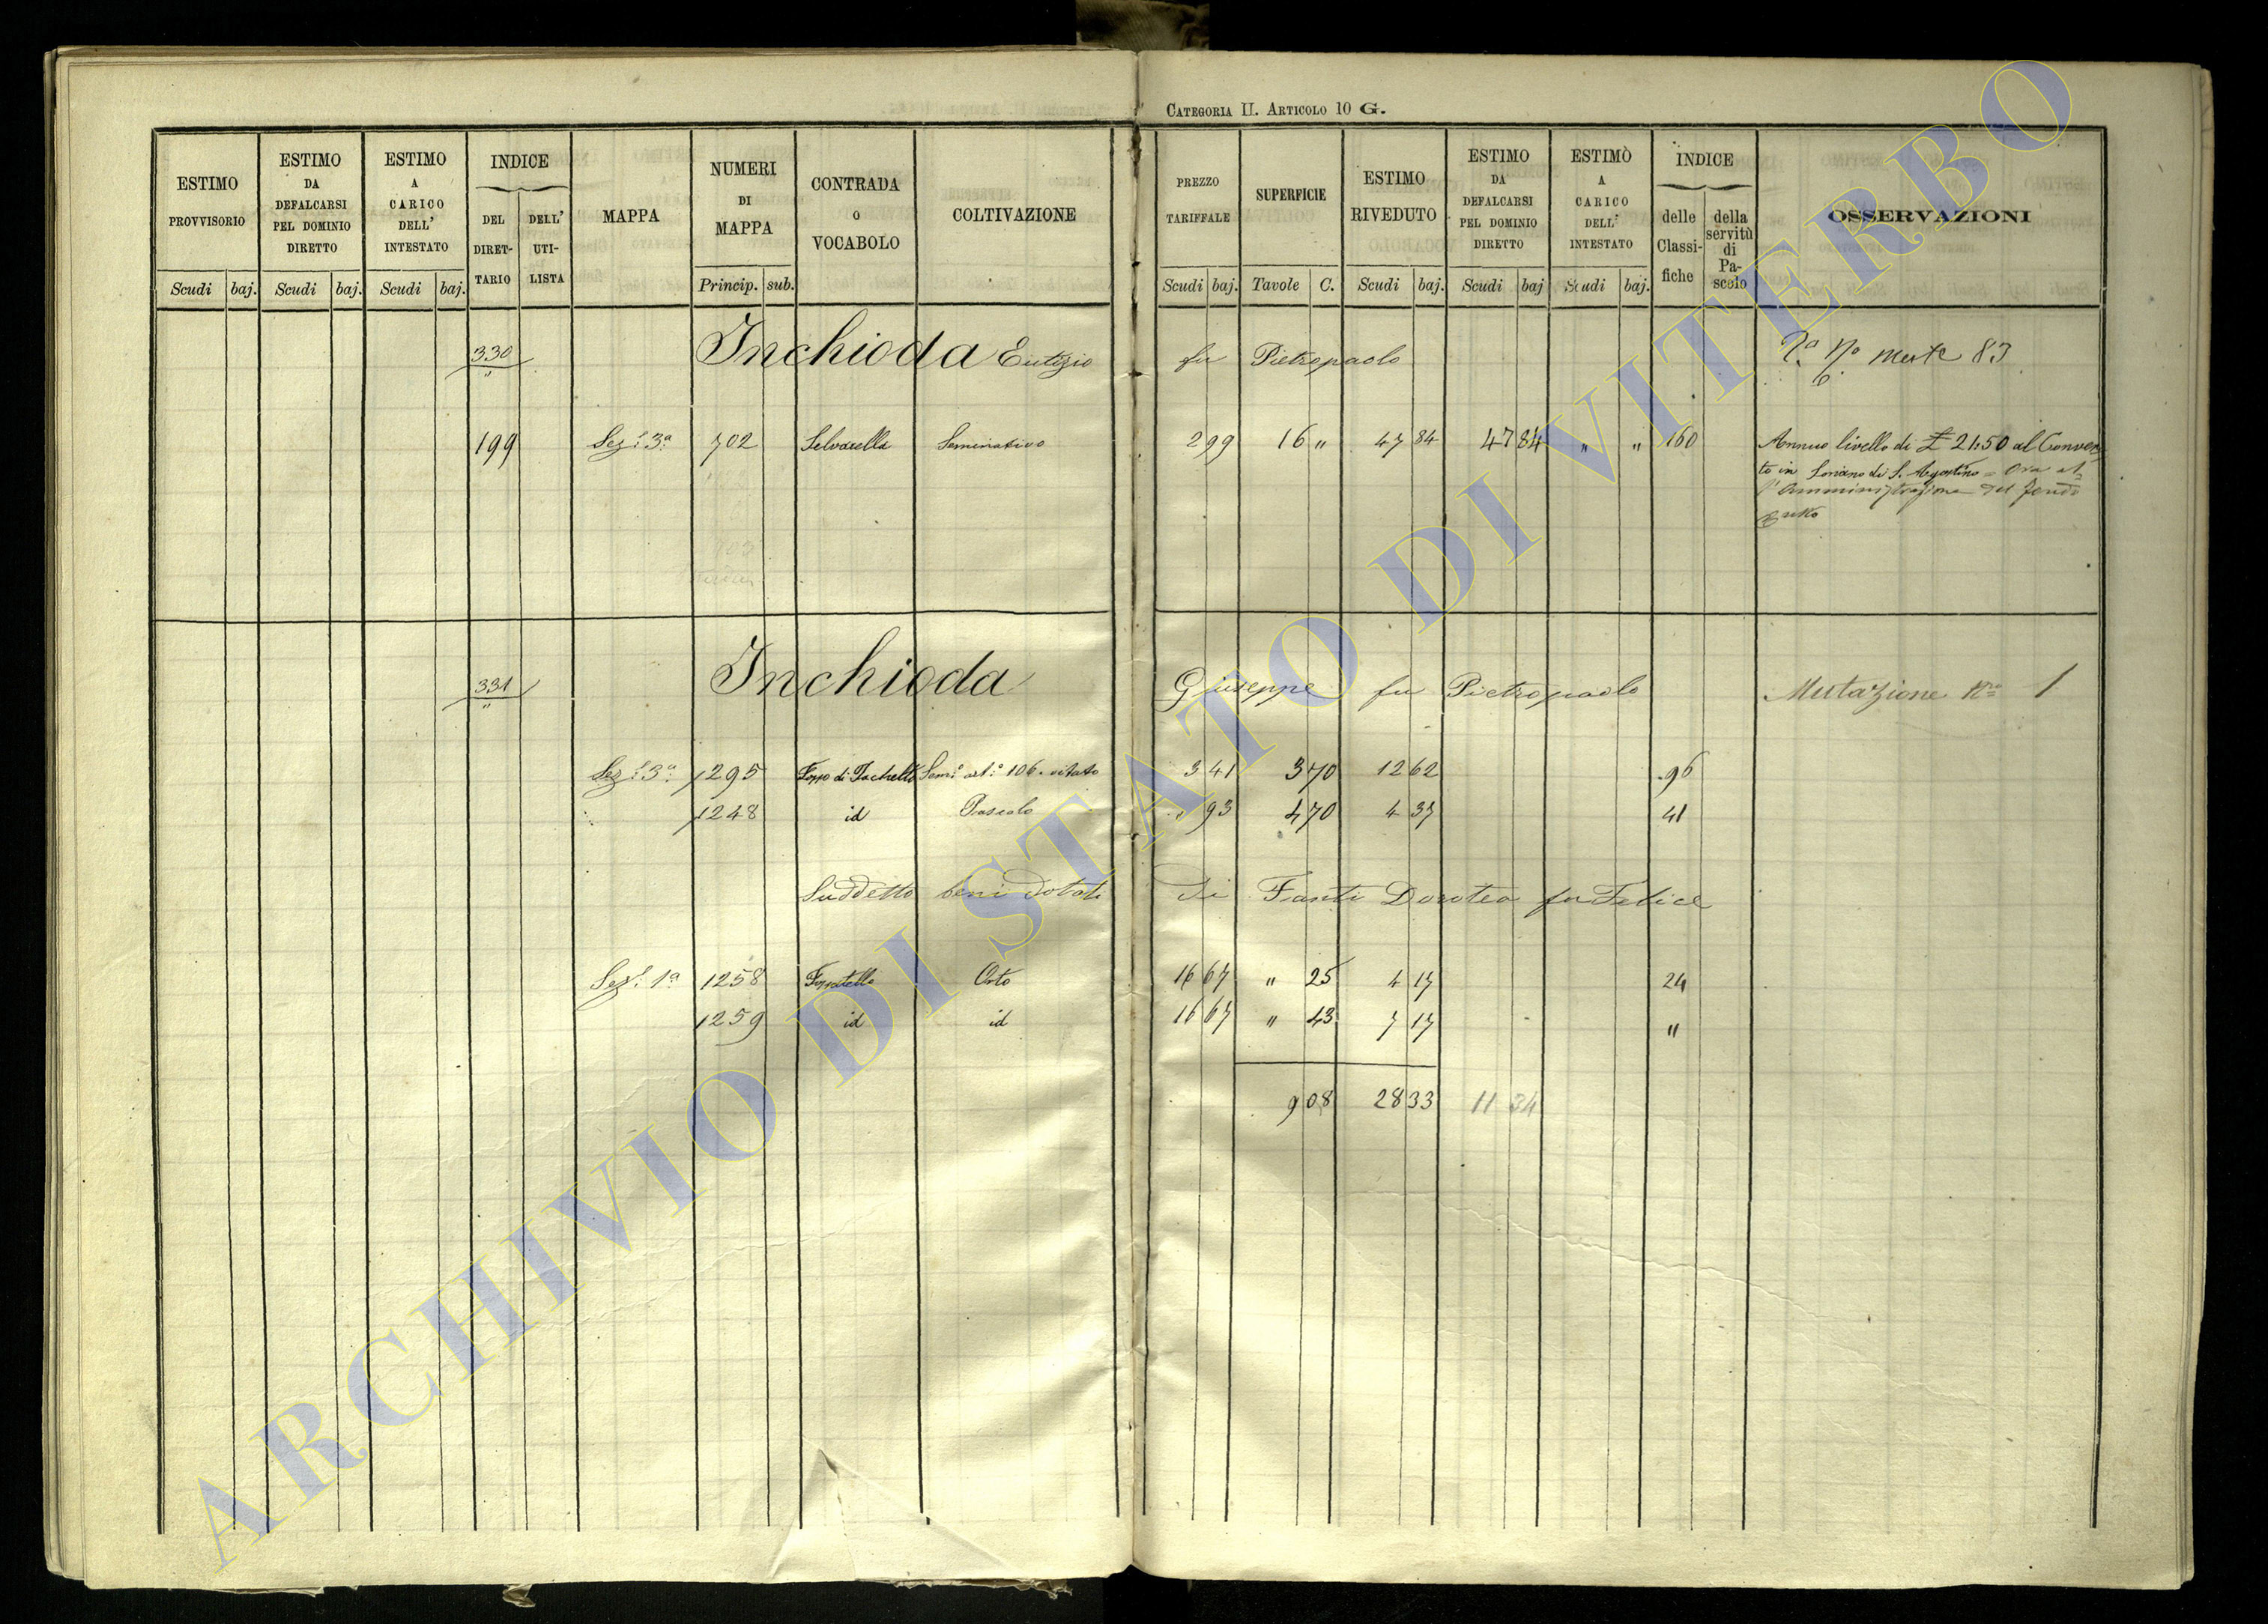 CATEGORIA II. ARTICOLO 10 G.
ESTIMO PROVVISORIO Scudi baj.
ESTIMO DA DEFALCARSI PEL DOMINIO DIRETTO Scudi baj.
ESTIMO A CARICO DELL' INTESTATO Scudi baj.
INDICE DEL DIRETTARIO DELL' UTILISTA
MAPPA
NUMERI DI MAPPA Princip. sub.
CONTRADA O VOCABOLO
COLTIVAZIONE
PREZZO TARIFFALE Scudi baj.
SUPERFICIE Tavole C.
ESTIMO RIVEDUTO Scudi baj.
ESTIMO DA DEFALCARSI PEL DOMINIO DIRETTO Scudi baj
ESTIMO A CARICO DELL' INTESTATO Scudi baj.
INDICE delle Classifiche della servitù di Pascolo
OSSERVAZIONI
330 Inchioda Eutizio fu Pietropaolo 83
"
199 Sez. 3ª 702 Selvarella Seminativo 2 99 16 " 47 84 47 84 " " 160 Annuo livello di £ 21:50 al Conven
to in Soriano di S. Agostino = Ora al
l'Amministrazione del fondo
Culto
331 Inchioda Giuseppe fu Pietropaolo Mutazione Nº 1
"
Sez. 3ª 1295 Semº artº 106. vitato 3 41 3 70 12 62 96
1248 id Pascolo " 93 4 70 4 37 41
Suddetto beni dotali di Fanti Dorotea fu Felice
Sez. 1ª 1258 Orto 16 67 " 25 4 17 24
1259 id id 16 67 " 43 7 17 "
9 08 28 33 11 34
ARCHIVIO DI STATO DI VITERBO